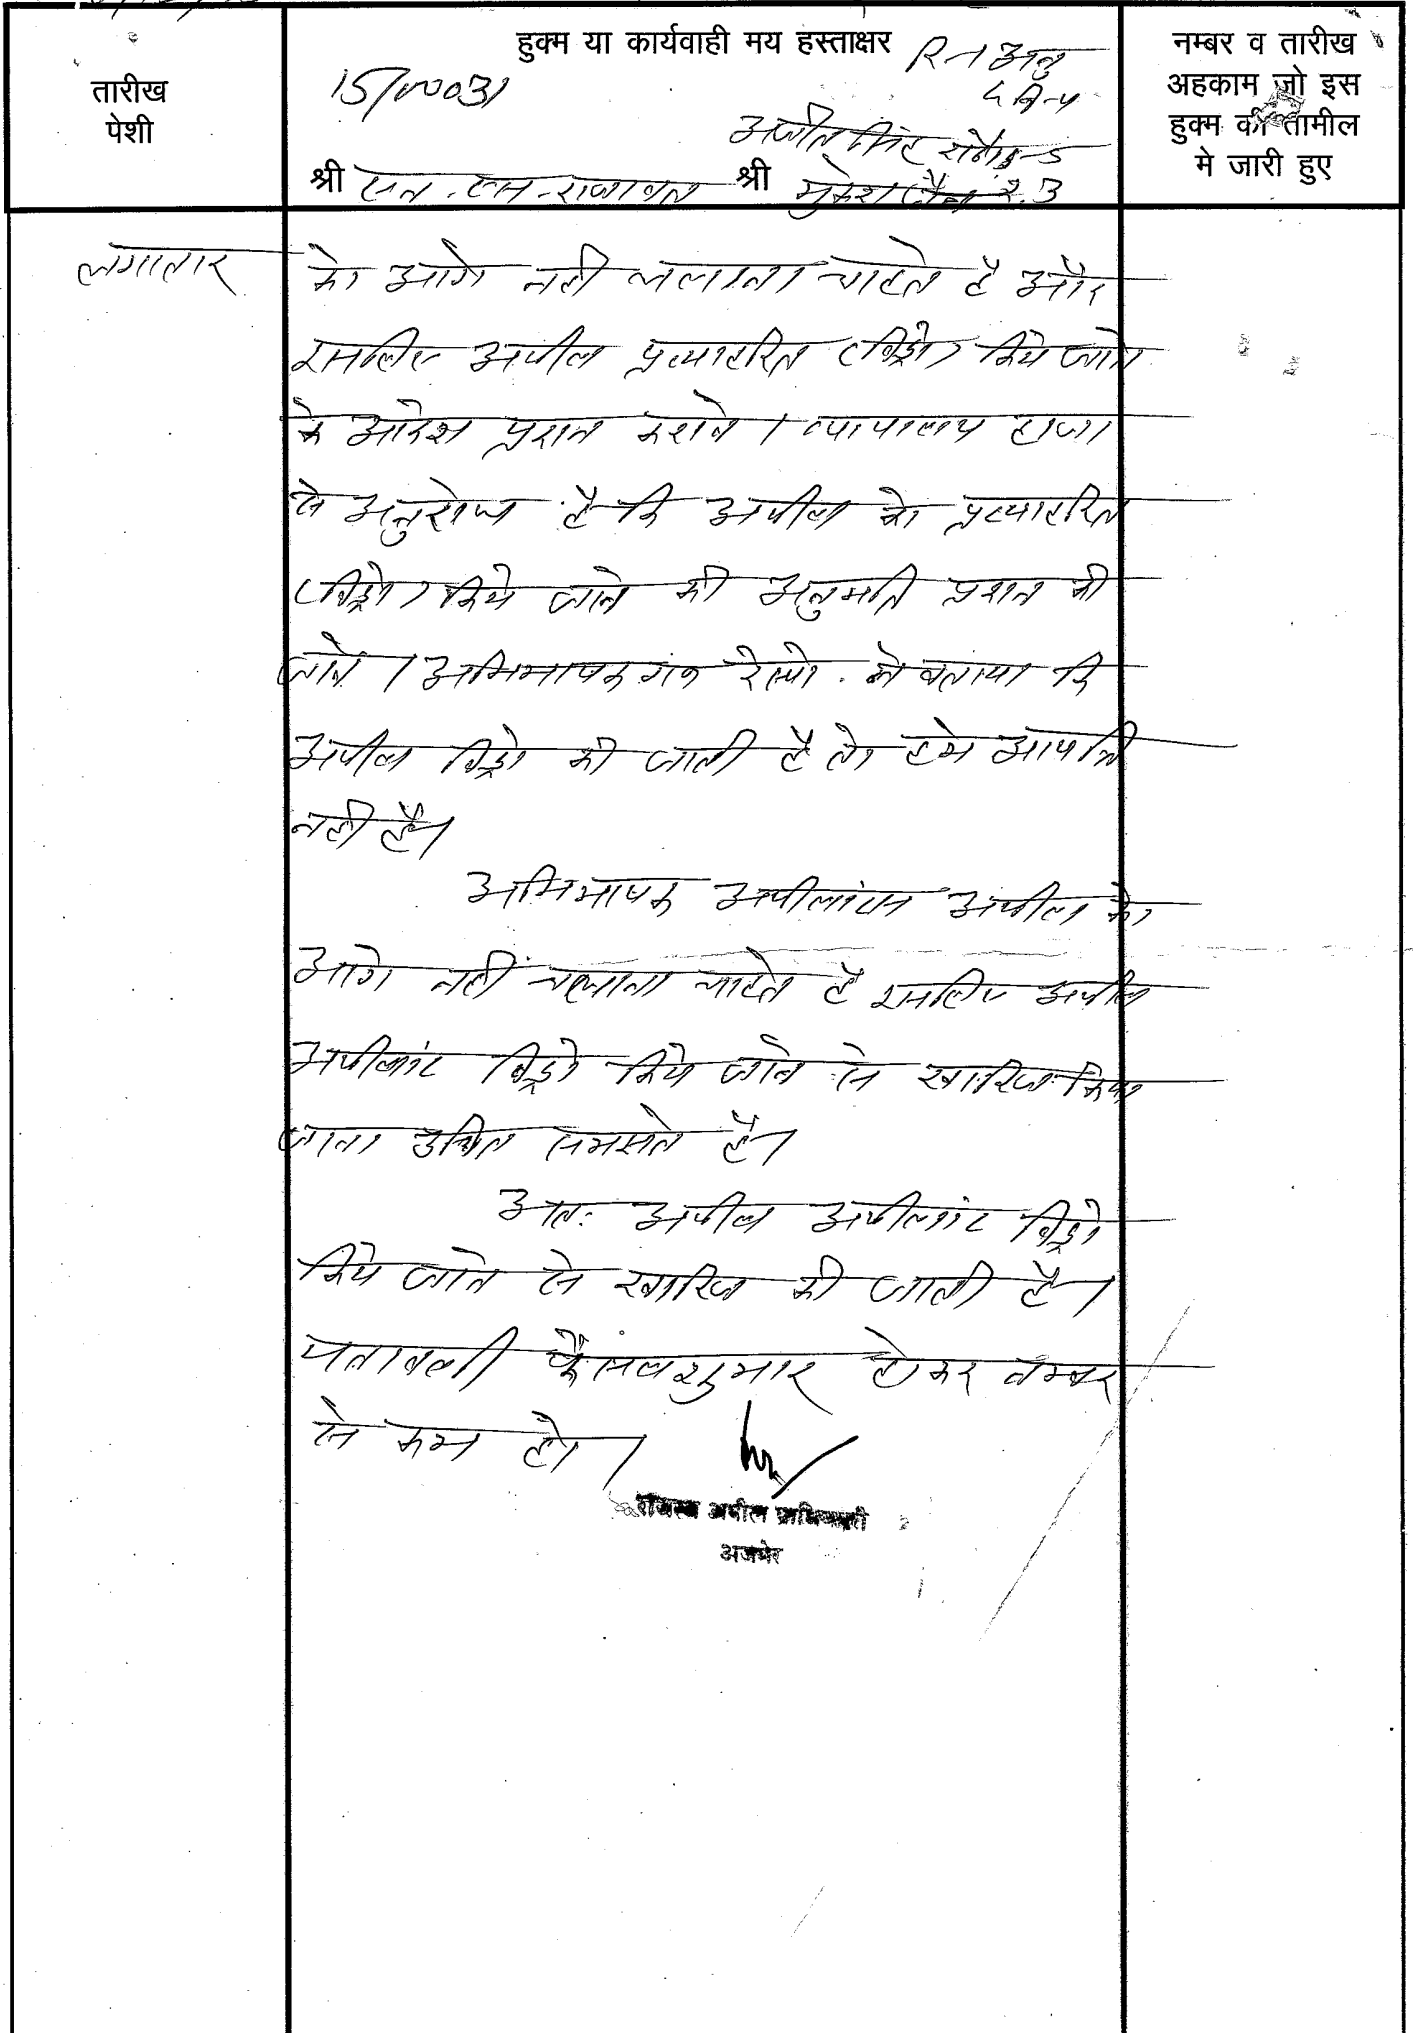 तारीख
पेशी
हुक्म या कार्यवाही मय हस्ताक्षर
नम्बर व तारीख
अहकाम जो इस
हुक्म की तामील
मे जारी हुए
R-1 अनु
अजीत सिंह राठौड़-5
श्री एन.एस.राजावत श्री मुकेश जैन 2.3
लगातार
को आगे नही चलाना चाहते है और
इसलिए अपील प्रत्याहरित (विड्रो) किये जाने
के आदेश प्रदान करावे। न्यायालय हाजा
से अनुरोध है कि अपील को प्रत्याहरित
(विड्रो) किये जाने की अनुमति प्रदान की
जावे। अभिभाषक गण रेस्पो. ने बताया कि
अपील विड्रो की जाती है तो हमे आपत्ति
नही है।
अभिभाषक अपीलांटस अपील को
आगे नहीं चलाना चाहते है इसलिए अपील
अपीलांट विड्रो किये जाने से खारिज किया
जाना उचित समझते है।
अतः अपील अपीलांट विड्रो
किये जाने से खारिज की जाती है।
पत्रावली फैसलशुमार होकर नम्बर
से कम हो।
राजस्व अपील प्राधिकारी
अजमेर